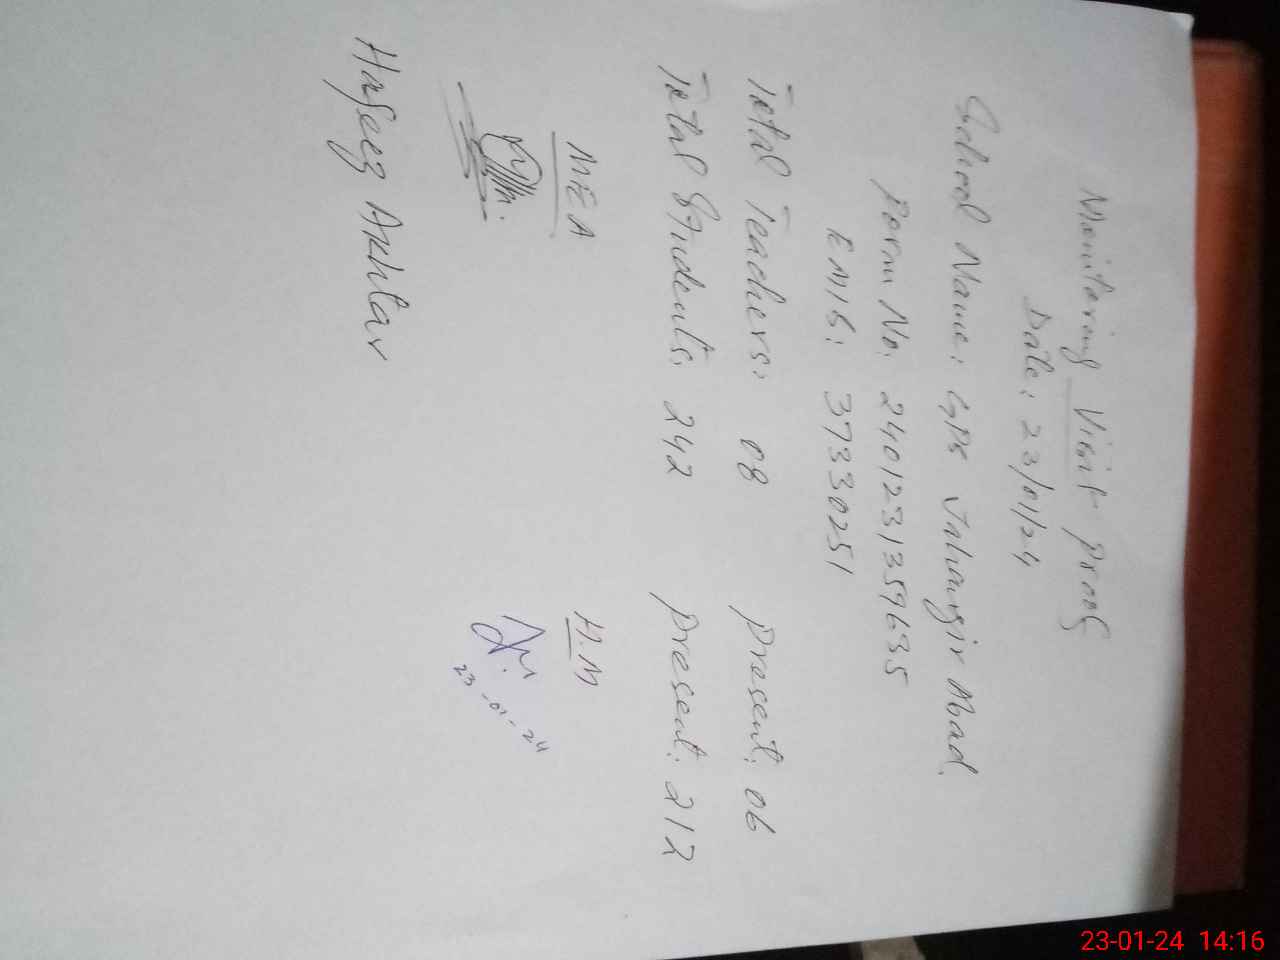 Monitoring Visit Proof
Date: 23/01/24
School Name: GPS Jahangir Abad.
Form No: 2401231359635
EMIS: 37330251
Total Teachers: 08 Present: 06
Total Students: 242 Present: 212
MEA H.M
23-01-24
Hafeez Akhtar
23-01-24 14:16